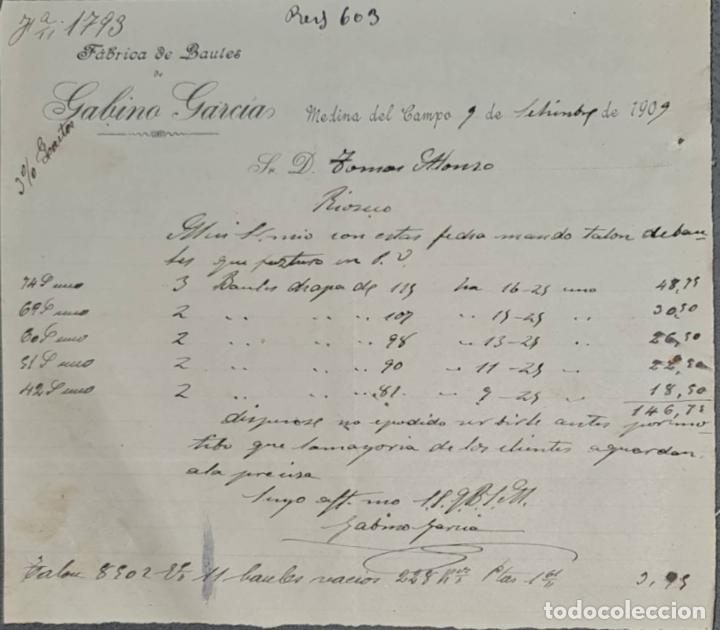 1793
Rey 603
Fábrica de Baules
de
Gabino García
Medina del Campo 9 de Setiembre de 1909
3 % Gastos
Sr. D. Tomas Alonso
Rioseco
Mui Sr mio con estas fecha mando talon de bau
les que
74 uno 3 Baules chapa de 115 ha 16-25 uno 48,75
69 uno 2 .. .. .. 107 15-25 .. 30,50
60 uno 2 .. .. .. 98 13-25 .. 26,50
51 uno 2 .. .. .. 90 11-25 .. 22,50
42 uno 2 .. .. .. 81 9-25 .. 18,50
146,75
dispense no epodido serbirle antes por mo
tibo que lamayoria de los clientes aguardan
ala precisa
Suyo aft. mo S.S.Q.B.S.M.
Gabino Garcia
Talon 8502 11 baules vacios 228 Ptas 3,95
todocoleccion
todocoleccion.net